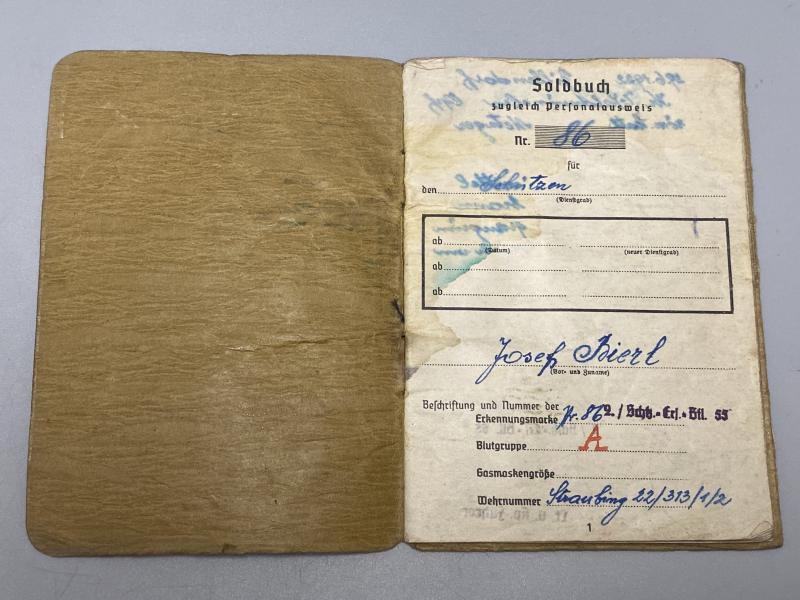 Soldbuch
zugleich Personalausweis
Nr. 86
für
den Schützen
(Dienstgrad)
ab
(Datum) (neuer Dienstgrad)
ab
ab
Josef Bierl
(Vor- und Zuname)
Beschriftung und Nummer der
Erkennungsmarke Nr. 86 2./Schtz.-Ers.-Btl. 55
Blutgruppe A
Gasmaskengröße
Wehrnummer Straubing 22/313/1/2
1